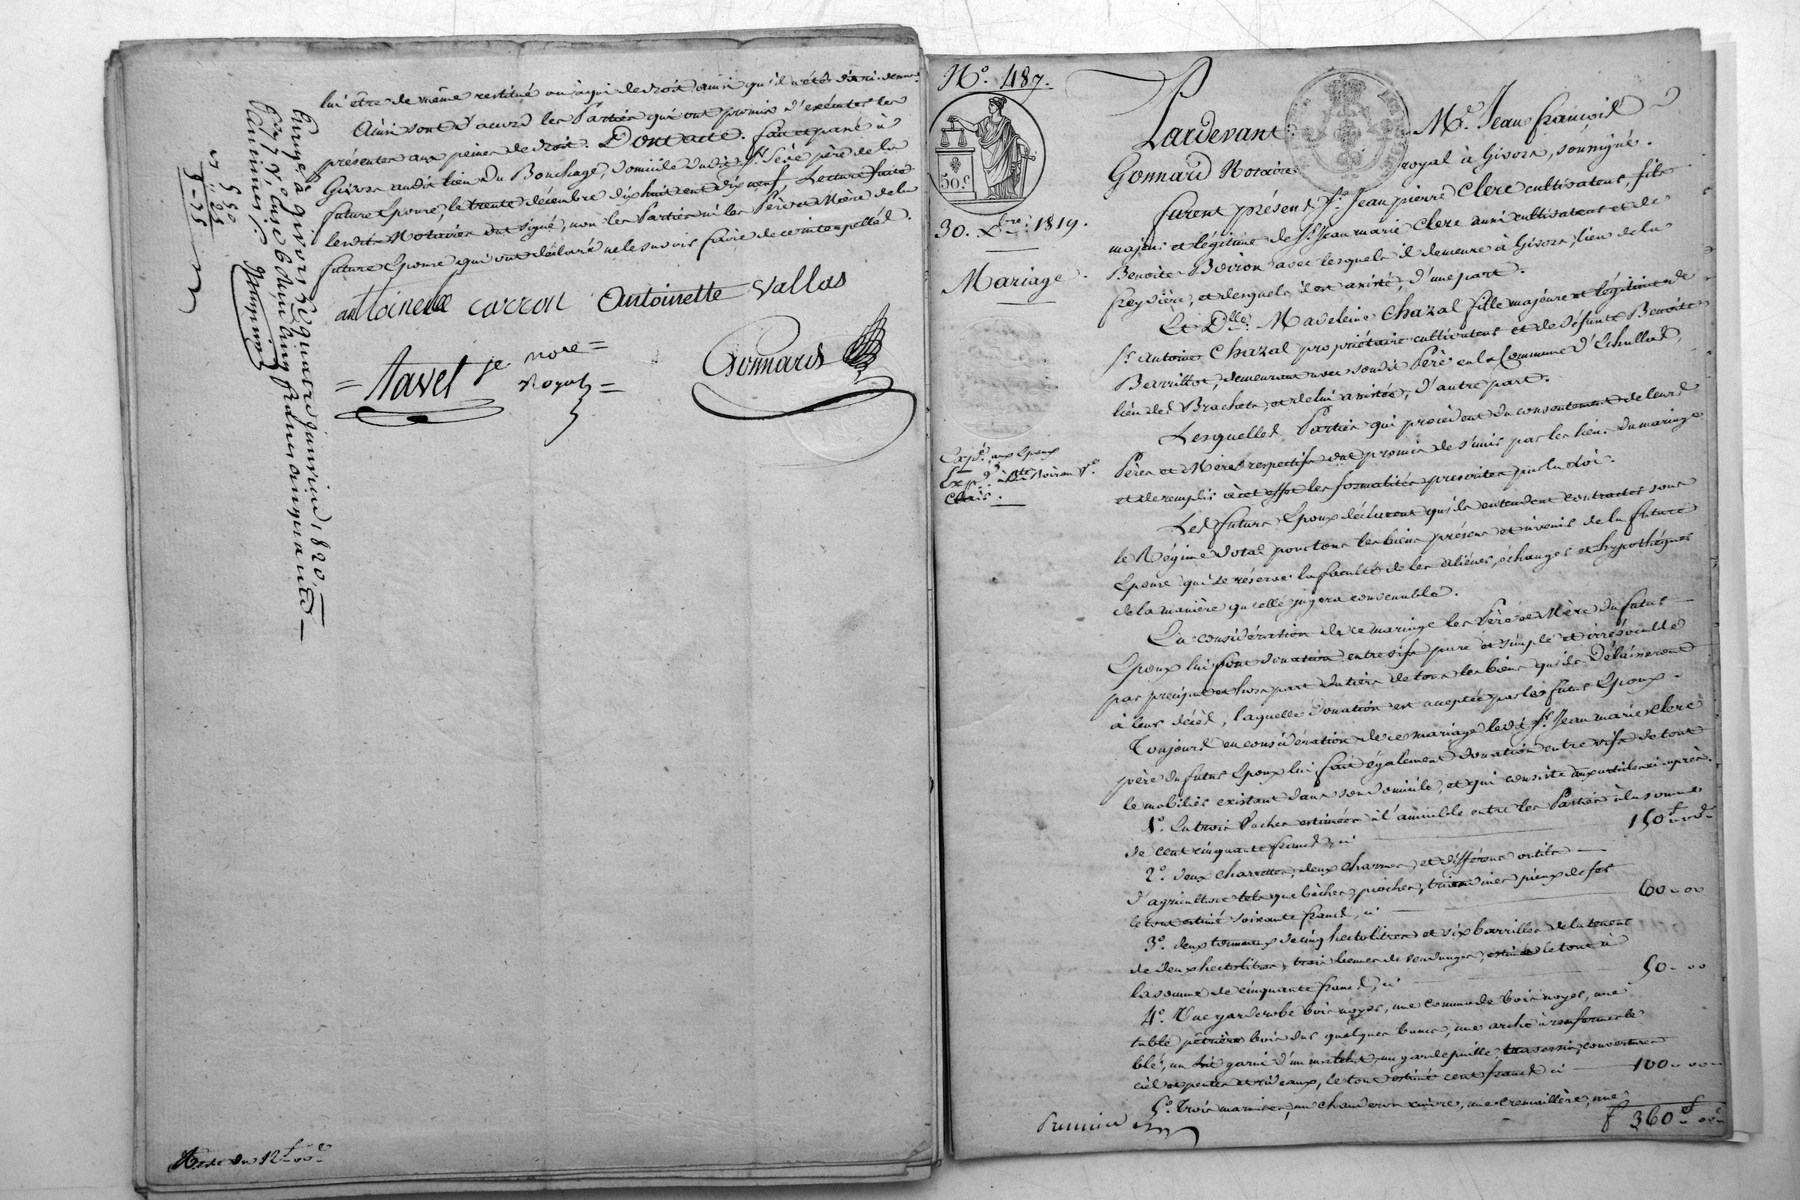 lui être de même restitué ou à qui de droit ainsi qu'il a été dit ci-dessus.
Ainsi sont d'accord les Parties qui ont promis d'exécuter les
présentes aux peines de droit. Dont acte. fait et passé à
Givors audit lieu du Bouchage, domicile dudit Sr. père de la
future Epouse, le trente décembre dix huit cent dix neuf, Lecture faite
lesdits Notaires ont signé, non les Parties ni les Père et Mère de la
future Epouse qui ont déclaré ne le savoir faire de ce interpellés.
antoine carron Antoinette Vallas
= Navel je nore =
Royal =
Gonnard
Enregé à givors le quatre janvier 1820
cinq francs cinquante
centimes
5 50
5-75
Reste du 12 f 00 c
No. 487.
50 C
30. Dbre. 1819.
Mariage.
Expd. aux Epoux
Clerc.
Pardevant Me. Jean françois
Gonnard Notaire royal à Givors, soussigné.
furent présens Sr. Jean pierre Clerc cultivateur, fils
majeur et légitime de Sr. Jean marie Clerc aussi cultivateur et de
Benoite Boiron avec lesquels il demeure à Givors, lieu de la
freydière, et desquels il est assisté, d'une part.
Et Dlle. Madeleine Chazal fille majeure et légitime de
Sr. antoine Chazal propriétaire cultivateur et de défunte Benoite
demeurant avec sondit Père en la Commune d'Echallas,
lieu des Brachets, et de lui assistée, d'autre part.
Lesquelles Parties qui procèdent du consentement de leurs
Pères et Mère respectifs ont promis de s'unir par les liens du mariage
et de remplir à cet effet les formalités prescrites par la Loi.
Les futurs Epoux déclarent qu'ils entendent contracter sous
le Régime Dotal pour tous les biens présens et à venir de la future
Epouse qui se réserve la faculté de les aliéner, échanger et hypothéquer
de la manière qu'elle jugera convenable.
En considération de ce mariage les Père et Mère du futur
Epoux lui font donation entrevifs pure et simple et irrévocable
par préciput et hors part du tiers de tous les biens qu'ils Délaisseront
à leurs décès, laquelle Donation est acceptée par les futurs Epoux.
Toujours en considération de ce mariage ledit Sr. Jean marie Clerc
père du futur Epoux lui fait également donation entre vifs de tout
le mobilier existant dans son domicile, et qui consiste aux articles ci après.
1o. En trois Vaches estimées à l'amiable entre les Parties à la somme
de cent cinquante francs, ci 150 f 00 c
2o. deux charrettes, deux charrues, et différens outils
d'agriculture tels que bêches, pioches, pieux de fer
le tout estimé soixante francs, ci 60-00
3o. deux tonneaux de cinq hectolitres et six barrilles de la teneur
de deux hectolitres, trois bennes de vendanges, estimés le tout à
la somme de cinquante francs, ci 50-00
4o. Une garderobe bois noyer, une commode bois noyer, une
table pétrière bois dur, quelques bancs, une arche à renfermer le
blé, un lit garni d'un matelat, un gardepaille, traversin, couverture
ciel et pentes et rideaux, le tout estimé cent francs ci 100-00
5o. Trois marmites, un chauderon cuivre, une cremaillère, une
f 360 f 00 c
Premier